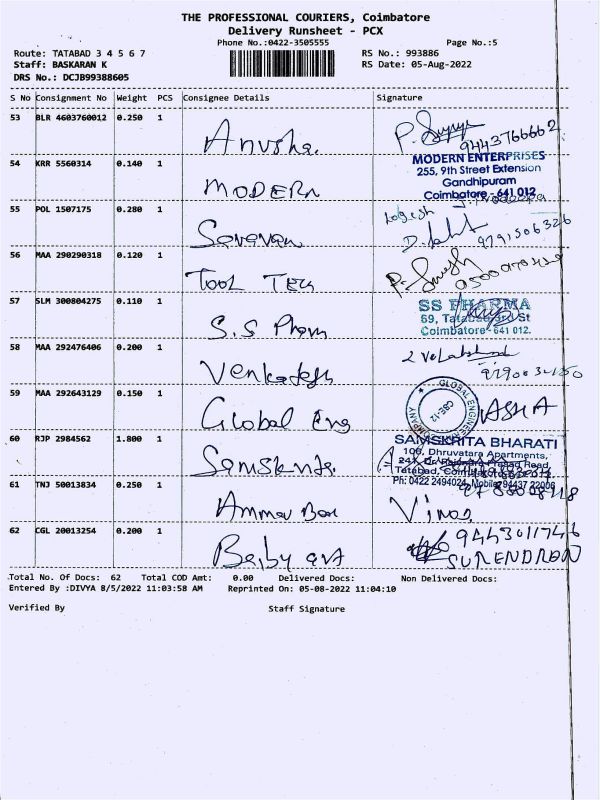 THE PROFESSIONAL COURIERS, Coimbatore
Delivery Runsheet - PCX
Phone No.:0422-3505555
Page No.:5
Route: TATABAD 3 4 5 6 7
RS No.: 993886
Staff: BASKARAN K
RS Date: 05-Aug-2022
DRS No.: DCJB99388605
S No Consignment No Weight PCS Consignee Details Signature
53 BLR 4603760012 0.250 1 Anusha. 9443766662
MODERN ENTERPRISES
255, 9th Street Extension
Gandhipuram
Coimbatore - 641 012.
54 KRR 5560314 0.140 1 MODERN
55 POL 1507175 0.280 1 Saravan Logesh 9791506326
56 MAA 290290318 0.120 1 Tool Tech
57 SLM 300804275 0.110 1 S.S Pharm
SS PHARMA
69, Tatabad 3rd St
Coimbatore- 641 012.
58 MAA 292476406 0.200 1 Venkadesh
59 MAA 292643129 0.150 1 Global Eng ASHA
GLOBAL ENGINEERING COMPANY
CBE-12
60 RJP 2984562 1.800 1 Samskrita.
SAMSKRITA BHARATI
100, Dhruvatara Apartments,
Tatabad, Coimbatore
Ph: 0422 2494024, Mobile: 94437 22006
61 TNJ 50013834 0.250 1 Amman Bon Vinoj
62 CGL 20013254 0.200 1 Baby ava 9443011746
SURENDRAN
Total No. Of Docs: 62 Total COD Amt: 0.00 Delivered Docs: Non Delivered Docs:
Entered By :DIVYA 8/5/2022 11:03:58 AM Reprinted On: 05-08-2022 11:04:10
Verified By Staff Signature